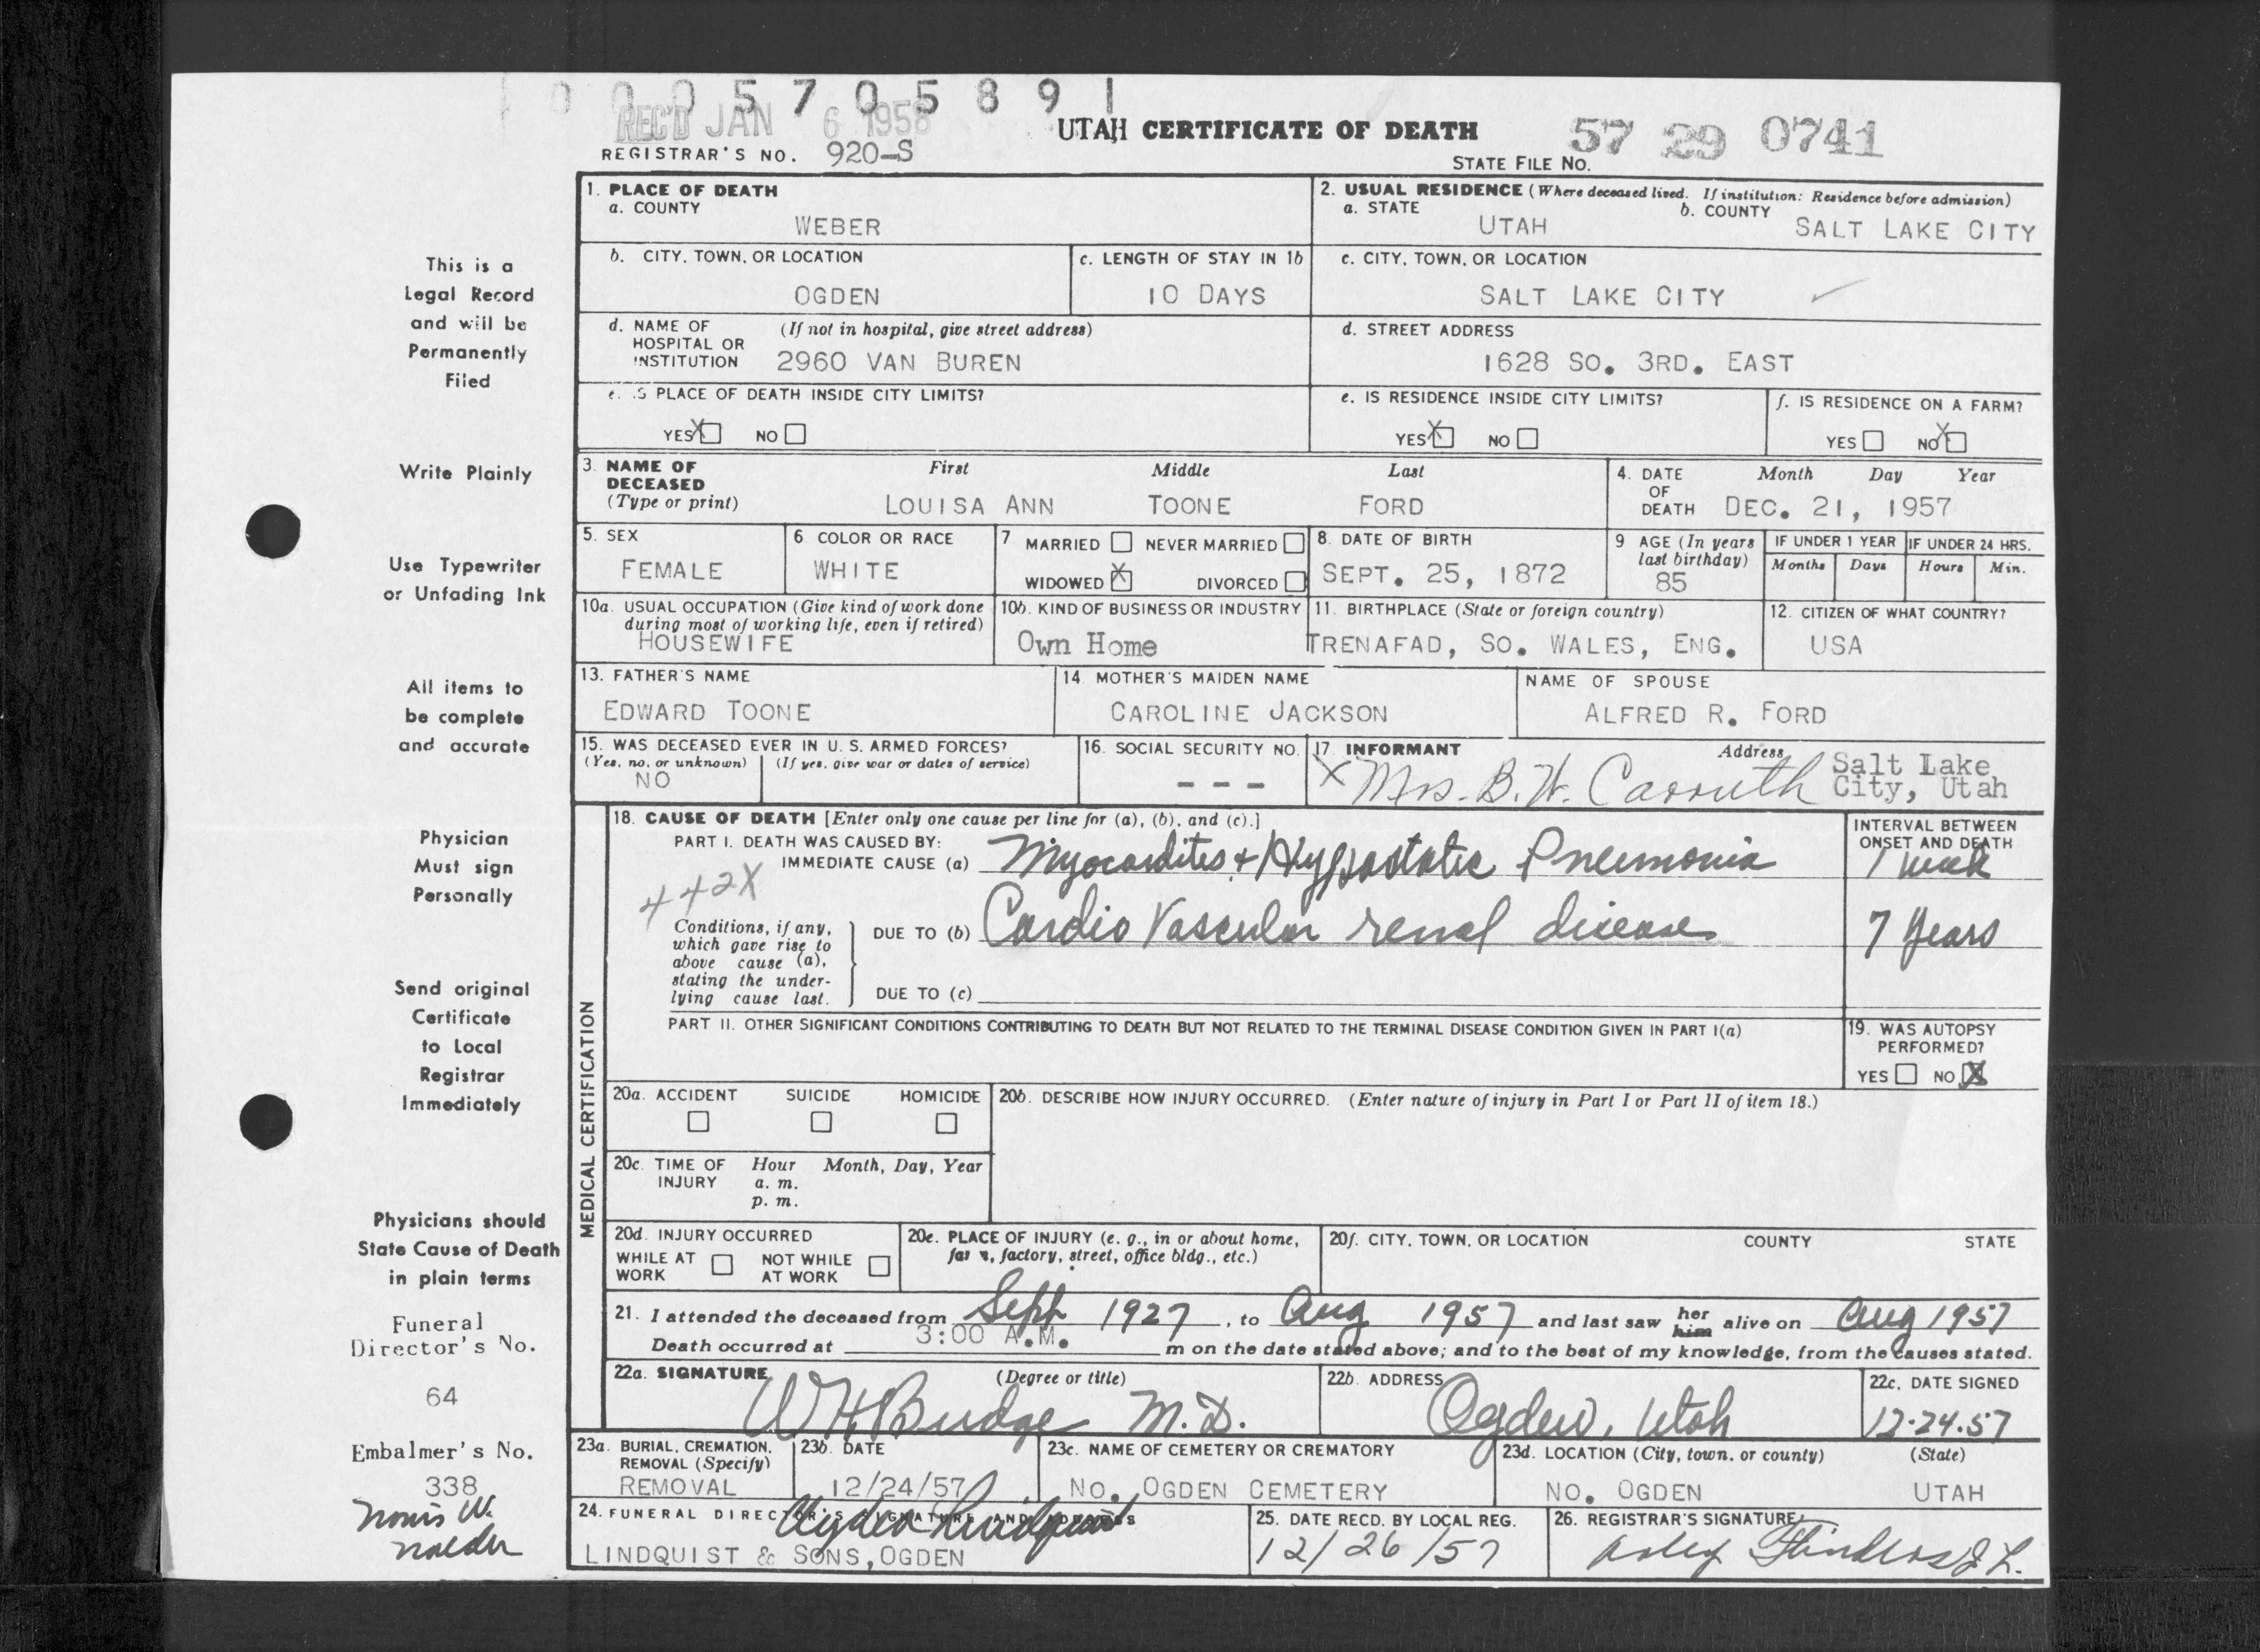 0 0 0 5 7 0 5 8 9 1
REC'D JAN 6 1958
UTAH CERTIFICATE OF DEATH
57 29 0741
REGISTRAR'S NO. 920-S
STATE FILE NO.
1. PLACE OF DEATH
a. COUNTY
WEBER
2. USUAL RESIDENCE (Where deceased lived. If institution: Residence before admission)
a. STATE
UTAH
b. COUNTY
SALT LAKE CITY
b. CITY, TOWN, OR LOCATION
OGDEN
c. LENGTH OF STAY IN 1b
10 DAYS
c. CITY, TOWN, OR LOCATION
SALT LAKE CITY
d. NAME OF HOSPITAL OR INSTITUTION
(If not in hospital, give street address)
2960 VAN BUREN
d. STREET ADDRESS
1628 SO. 3RD. EAST
e. IS PLACE OF DEATH INSIDE CITY LIMITS?
YES X NO
e. IS RESIDENCE INSIDE CITY LIMITS?
YES X NO
f. IS RESIDENCE ON A FARM?
YES NO X
3. NAME OF DECEASED (Type or print)
First Middle Last
LOUISA ANN TOONE FORD
4. DATE OF DEATH
Month Day Year
DEC. 21, 1957
5. SEX
FEMALE
6 COLOR OR RACE
WHITE
7 MARRIED NEVER MARRIED
WIDOWED X DIVORCED
8. DATE OF BIRTH
SEPT. 25, 1872
9 AGE (In years last birthday)
85
IF UNDER 1 YEAR
Months Days
IF UNDER 24 HRS.
Hours Min.
10a. USUAL OCCUPATION (Give kind of work done
during most of working life, even if retired)
HOUSEWIFE
10b. KIND OF BUSINESS OR INDUSTRY
Own Home
11. BIRTHPLACE (State or foreign country)
TRENAFAD, SO. WALES, ENG.
12. CITIZEN OF WHAT COUNTRY?
USA
13. FATHER'S NAME
EDWARD TOONE
14. MOTHER'S MAIDEN NAME
CAROLINE JACKSON
NAME OF SPOUSE
ALFRED R. FORD
15. WAS DECEASED EVER IN U. S. ARMED FORCES?
(Yes, no, or unknown) (If yes, give war or dates of service)
NO
16. SOCIAL SECURITY NO.
- - -
17. INFORMANT Address
X Mrs. B. W. Carruth Salt Lake
City, Utah
MEDICAL CERTIFICATION
18. CAUSE OF DEATH [Enter only one cause per line for (a), (b), and (c).]
PART I. DEATH WAS CAUSED BY:
IMMEDIATE CAUSE (a) Myocarditis + Hypostatic Pneumonia
INTERVAL BETWEEN
ONSET AND DEATH
1 week
442X
Conditions, if any,
which gave rise to
above cause (a),
stating the under-
lying cause last.
DUE TO (b) Cardio Vascular renal disease
7 years
DUE TO (c)
PART II. OTHER SIGNIFICANT CONDITIONS CONTRIBUTING TO DEATH BUT NOT RELATED TO THE TERMINAL DISEASE CONDITION GIVEN IN PART I(a)
19. WAS AUTOPSY
PERFORMED?
YES NO X
20a. ACCIDENT SUICIDE HOMICIDE
20b. DESCRIBE HOW INJURY OCCURRED. (Enter nature of injury in Part I or Part II of item 18.)
20c. TIME OF INJURY
Hour Month, Day, Year
a. m.
p. m.
20d. INJURY OCCURRED
WHILE AT WORK NOT WHILE AT WORK
20e. PLACE OF INJURY (e. g., in or about home,
farm, factory, street, office bldg., etc.)
20f. CITY, TOWN, OR LOCATION COUNTY STATE
21. I attended the deceased from Sept 1927, to Aug 1957 and last saw her him alive on Aug 1957
Death occurred at 3:00 A.M. m on the date stated above; and to the best of my knowledge, from the causes stated.
22a. SIGNATURE (Degree or title)
W H Budge M. D.
22b. ADDRESS
Ogden, Utah
22c. DATE SIGNED
12-24-57
23a. BURIAL, CREMATION,
REMOVAL (Specify)
REMOVAL
23b. DATE
12/24/57
23c. NAME OF CEMETERY OR CREMATORY
NO. OGDEN CEMETERY
23d. LOCATION (City, town, or county) (State)
NO. OGDEN UTAH
24. FUNERAL DIRECTOR'S SIGNATURE AND ADDRESS
Lindquist
LINDQUIST & SONS, OGDEN
25. DATE RECD. BY LOCAL REG.
12/26/57
26. REGISTRAR'S SIGNATURE
Flinders
This is a
Legal Record
and will be
Permanently
Filed
Write Plainly
Use Typewriter
or Unfading Ink
All items to
be complete
and accurate
Physician
Must sign
Personally
Send original
Certificate
to Local
Registrar
Immediately
Physicians should
State Cause of Death
in plain terms
Funeral
Director's No.
64
Embalmer's No.
338
Norris W.
Nalder